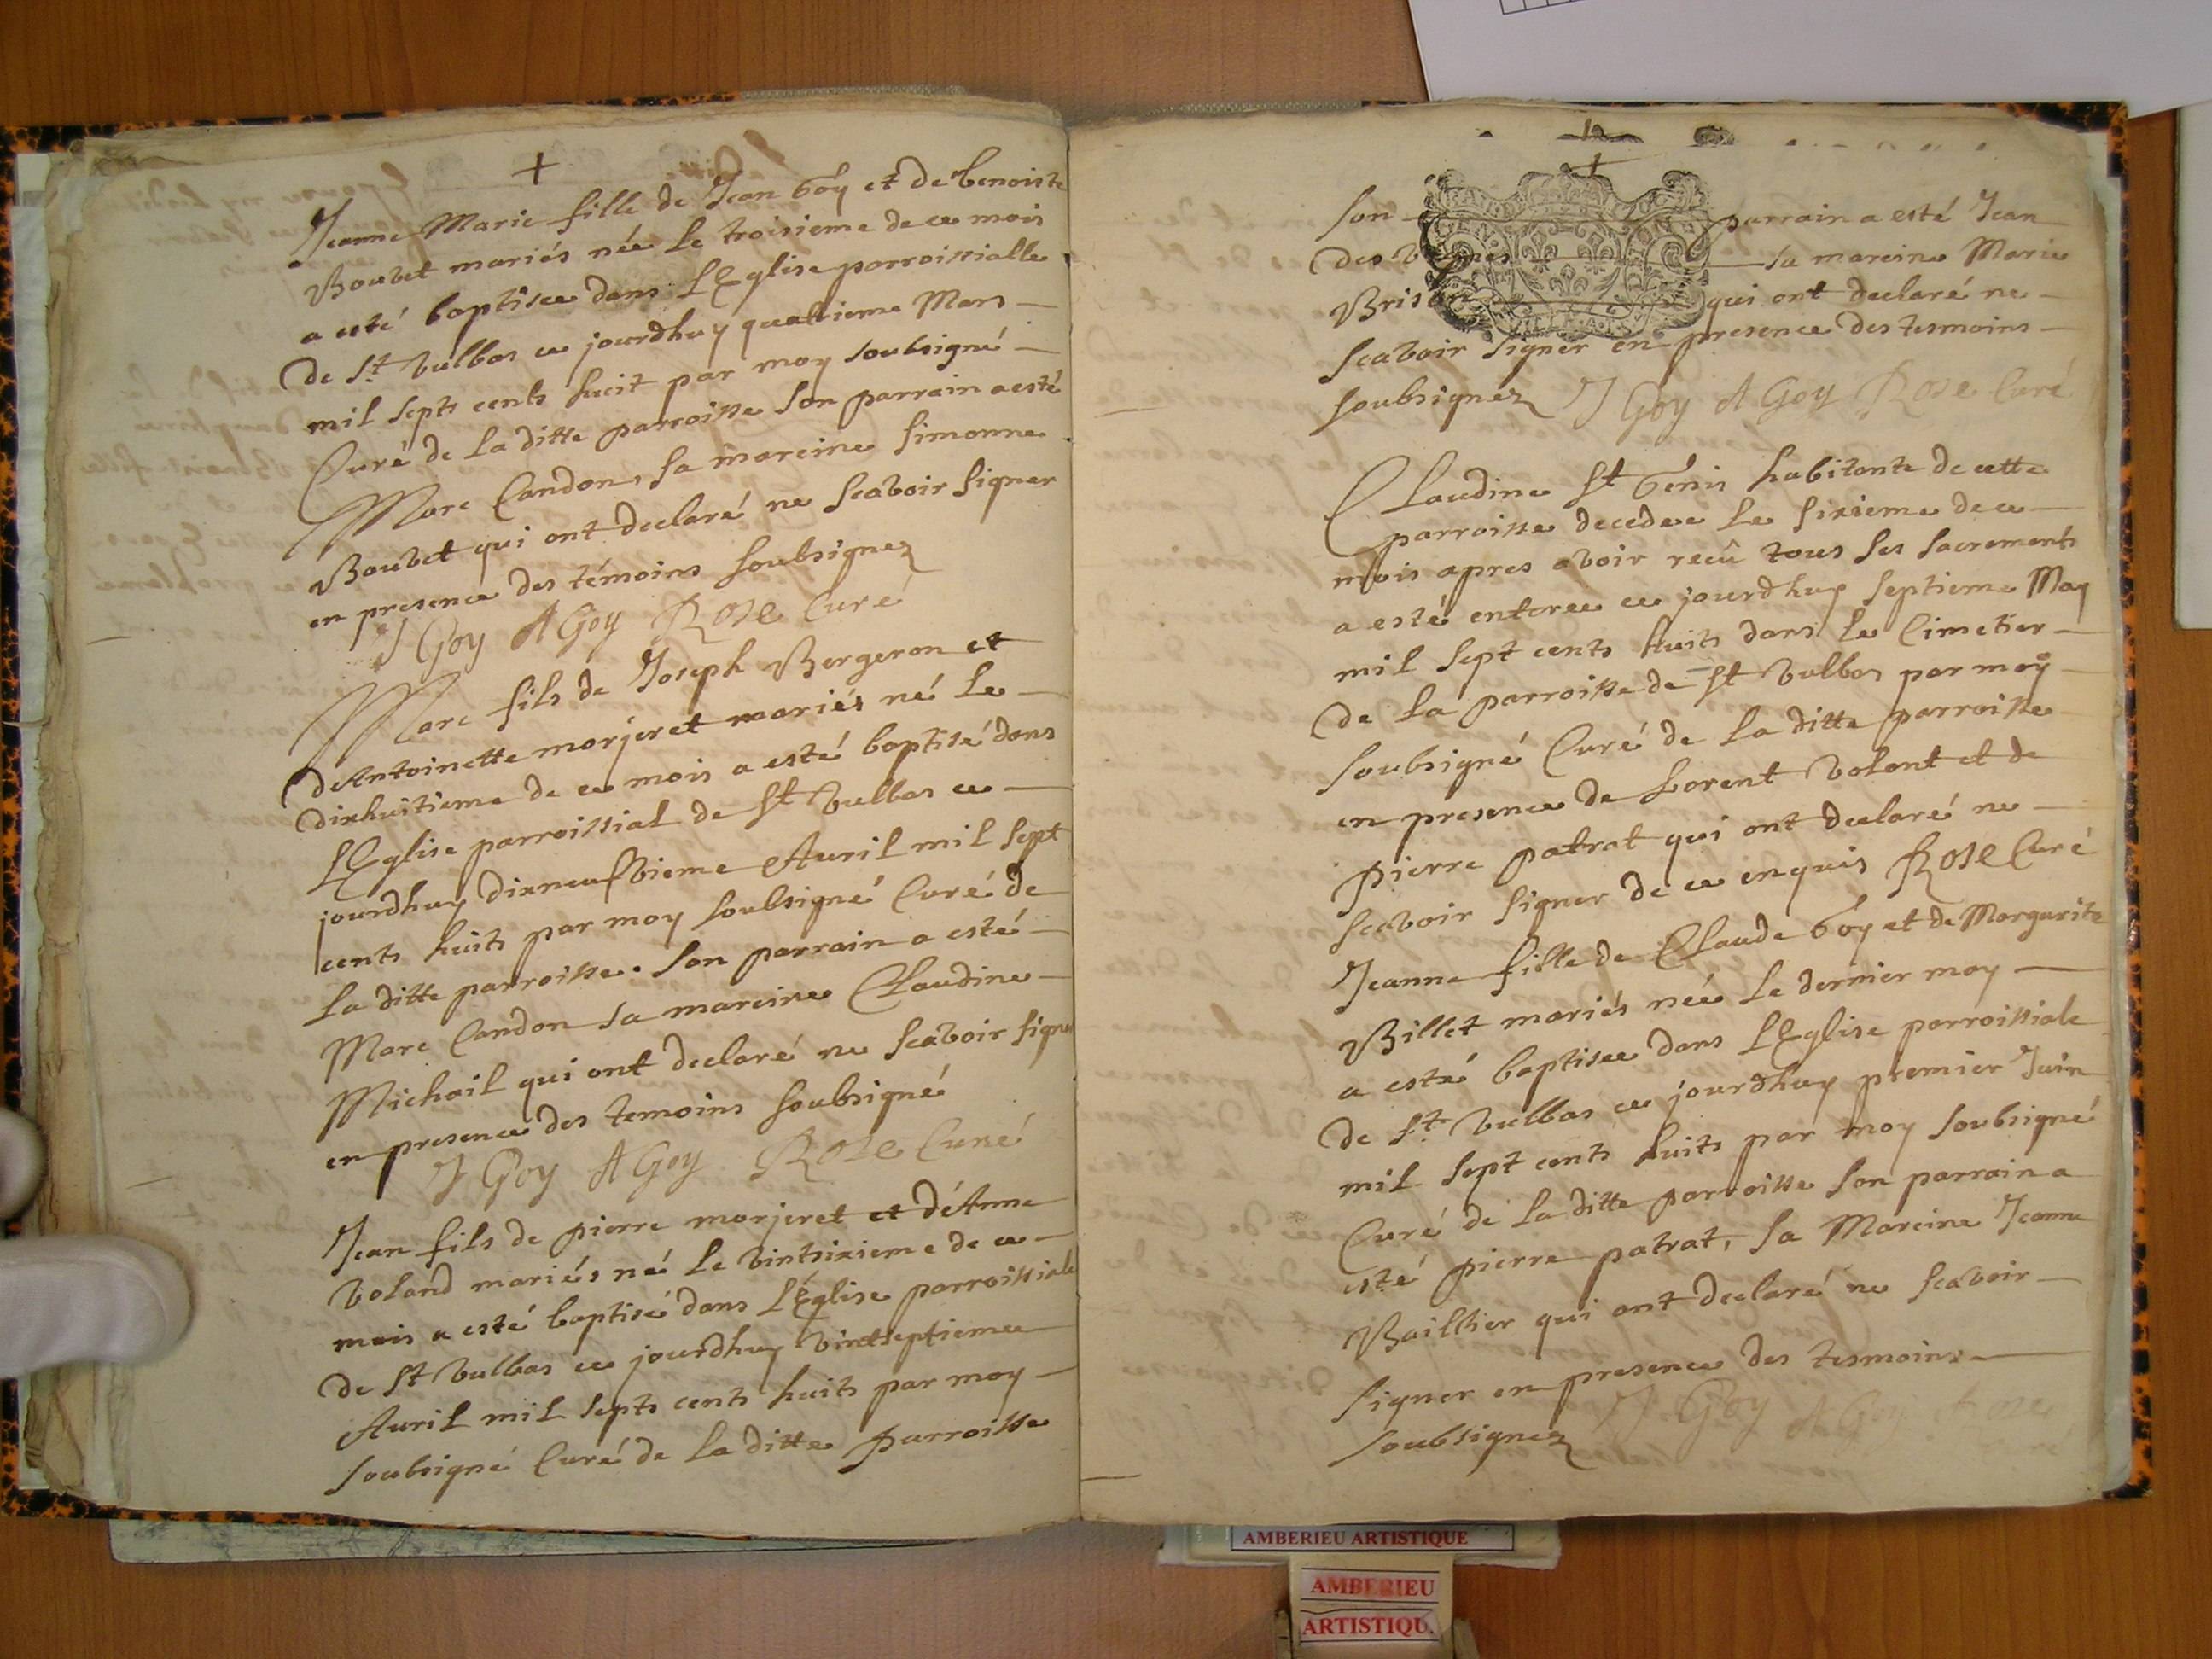 +
Jeanne Marie fille de Jean Goy et de benoiste
Boubet mariés née le troisieme de ce mois
a esté baptisee dans l'Eglise parroissialle
de St. Vulbas ce jourdhuy quattieme Mars
mil septs cents huit par moy soubsigné
Curé de la ditte parroisse son parrain a esté
Marc Candon, sa mareine simonne
Boubet qui ont declaré ne scavoir signer
en presence des témoins soubsignez
J Goy A Goy Rose Curé
Marc fils de Joseph Bergeron et
d'Antoinette morjeret mariés né le
dixhuitieme de ce mois a esté baptisé dans
l'Eglise parroissial de St Vulbas ce
jourdhuy dixneufvieme Auril mil sept
cents huits par moy soubsigné Curé de
la ditte parroisse. son parrain a esté
Marc Candon sa mareine Claudine
Michail qui ont declaré ne scavoir signer
en presence des temoins soubsigné
J Goy A Goy Rose Curé
Jean fils de pierre morjeret et d'Anne
Voland mariés né le vintsixieme de ce
mois a esté baptisé dans l'Église parroissiale
de St Vulbas ce jourdhuy vintseptieme
Auril mil septs cents huits par moy
soubsigné Curé de la ditte parroisse
+
son parrain a esté Jean
des sa mareine Marie
Brison qui ont declaré ne
scavoir signer en presence des tesmoins
soubsignez J Goy A Goy Rose Curé
Claudine St Genis habitante de cette
parroisse decedee le sixieme de ce
mois apres avoir reçû tous ses sacrements
a esté enteree ce jourdhuy septieme May
mil sept cents huits dans le Cimetier
de la parroisse de St Vulbas par moy
soubsigné Curé de la ditte parroisse
en presence de Lorent Volont et de
pierre patrat qui ont declaré ne
scavoir signer de ce enquis Rose Curé
Jeanne fille de Claude Goy et de Margurite
Billet mariés née le dernier may
a esté baptisee dans l'Eglise parroissiale
de St. Vulbas ce jourdhuy premier Juin
mil sept cents huits par moy soubsigné
Curé de la ditte parroisse son parrain a
esté pierre patrat, sa Mareine Jeanne
Baillier qui ont declaré ne scavoir
signer en presence des tesmoins
soubsignez J Goy A Goy Rose
Curé
AMBERIEU ARTISTIQUE
AMBERIEU
ARTISTIQU